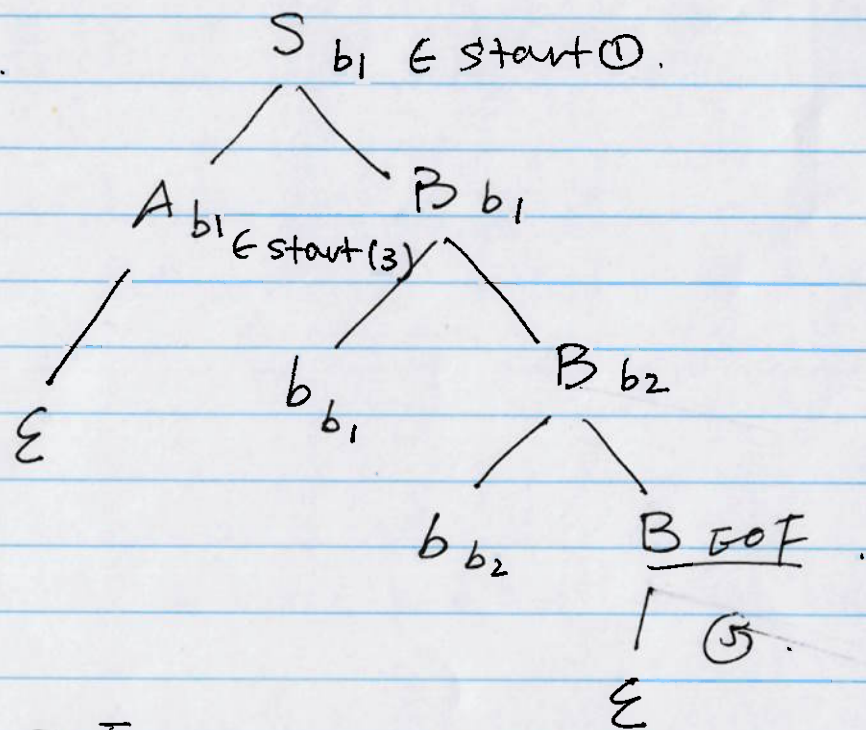 S b1 ∈ start①.
A b1 ∈ start(3) B b1
ε b b1 B b2
b b2 B EOF .
⑤.
ε